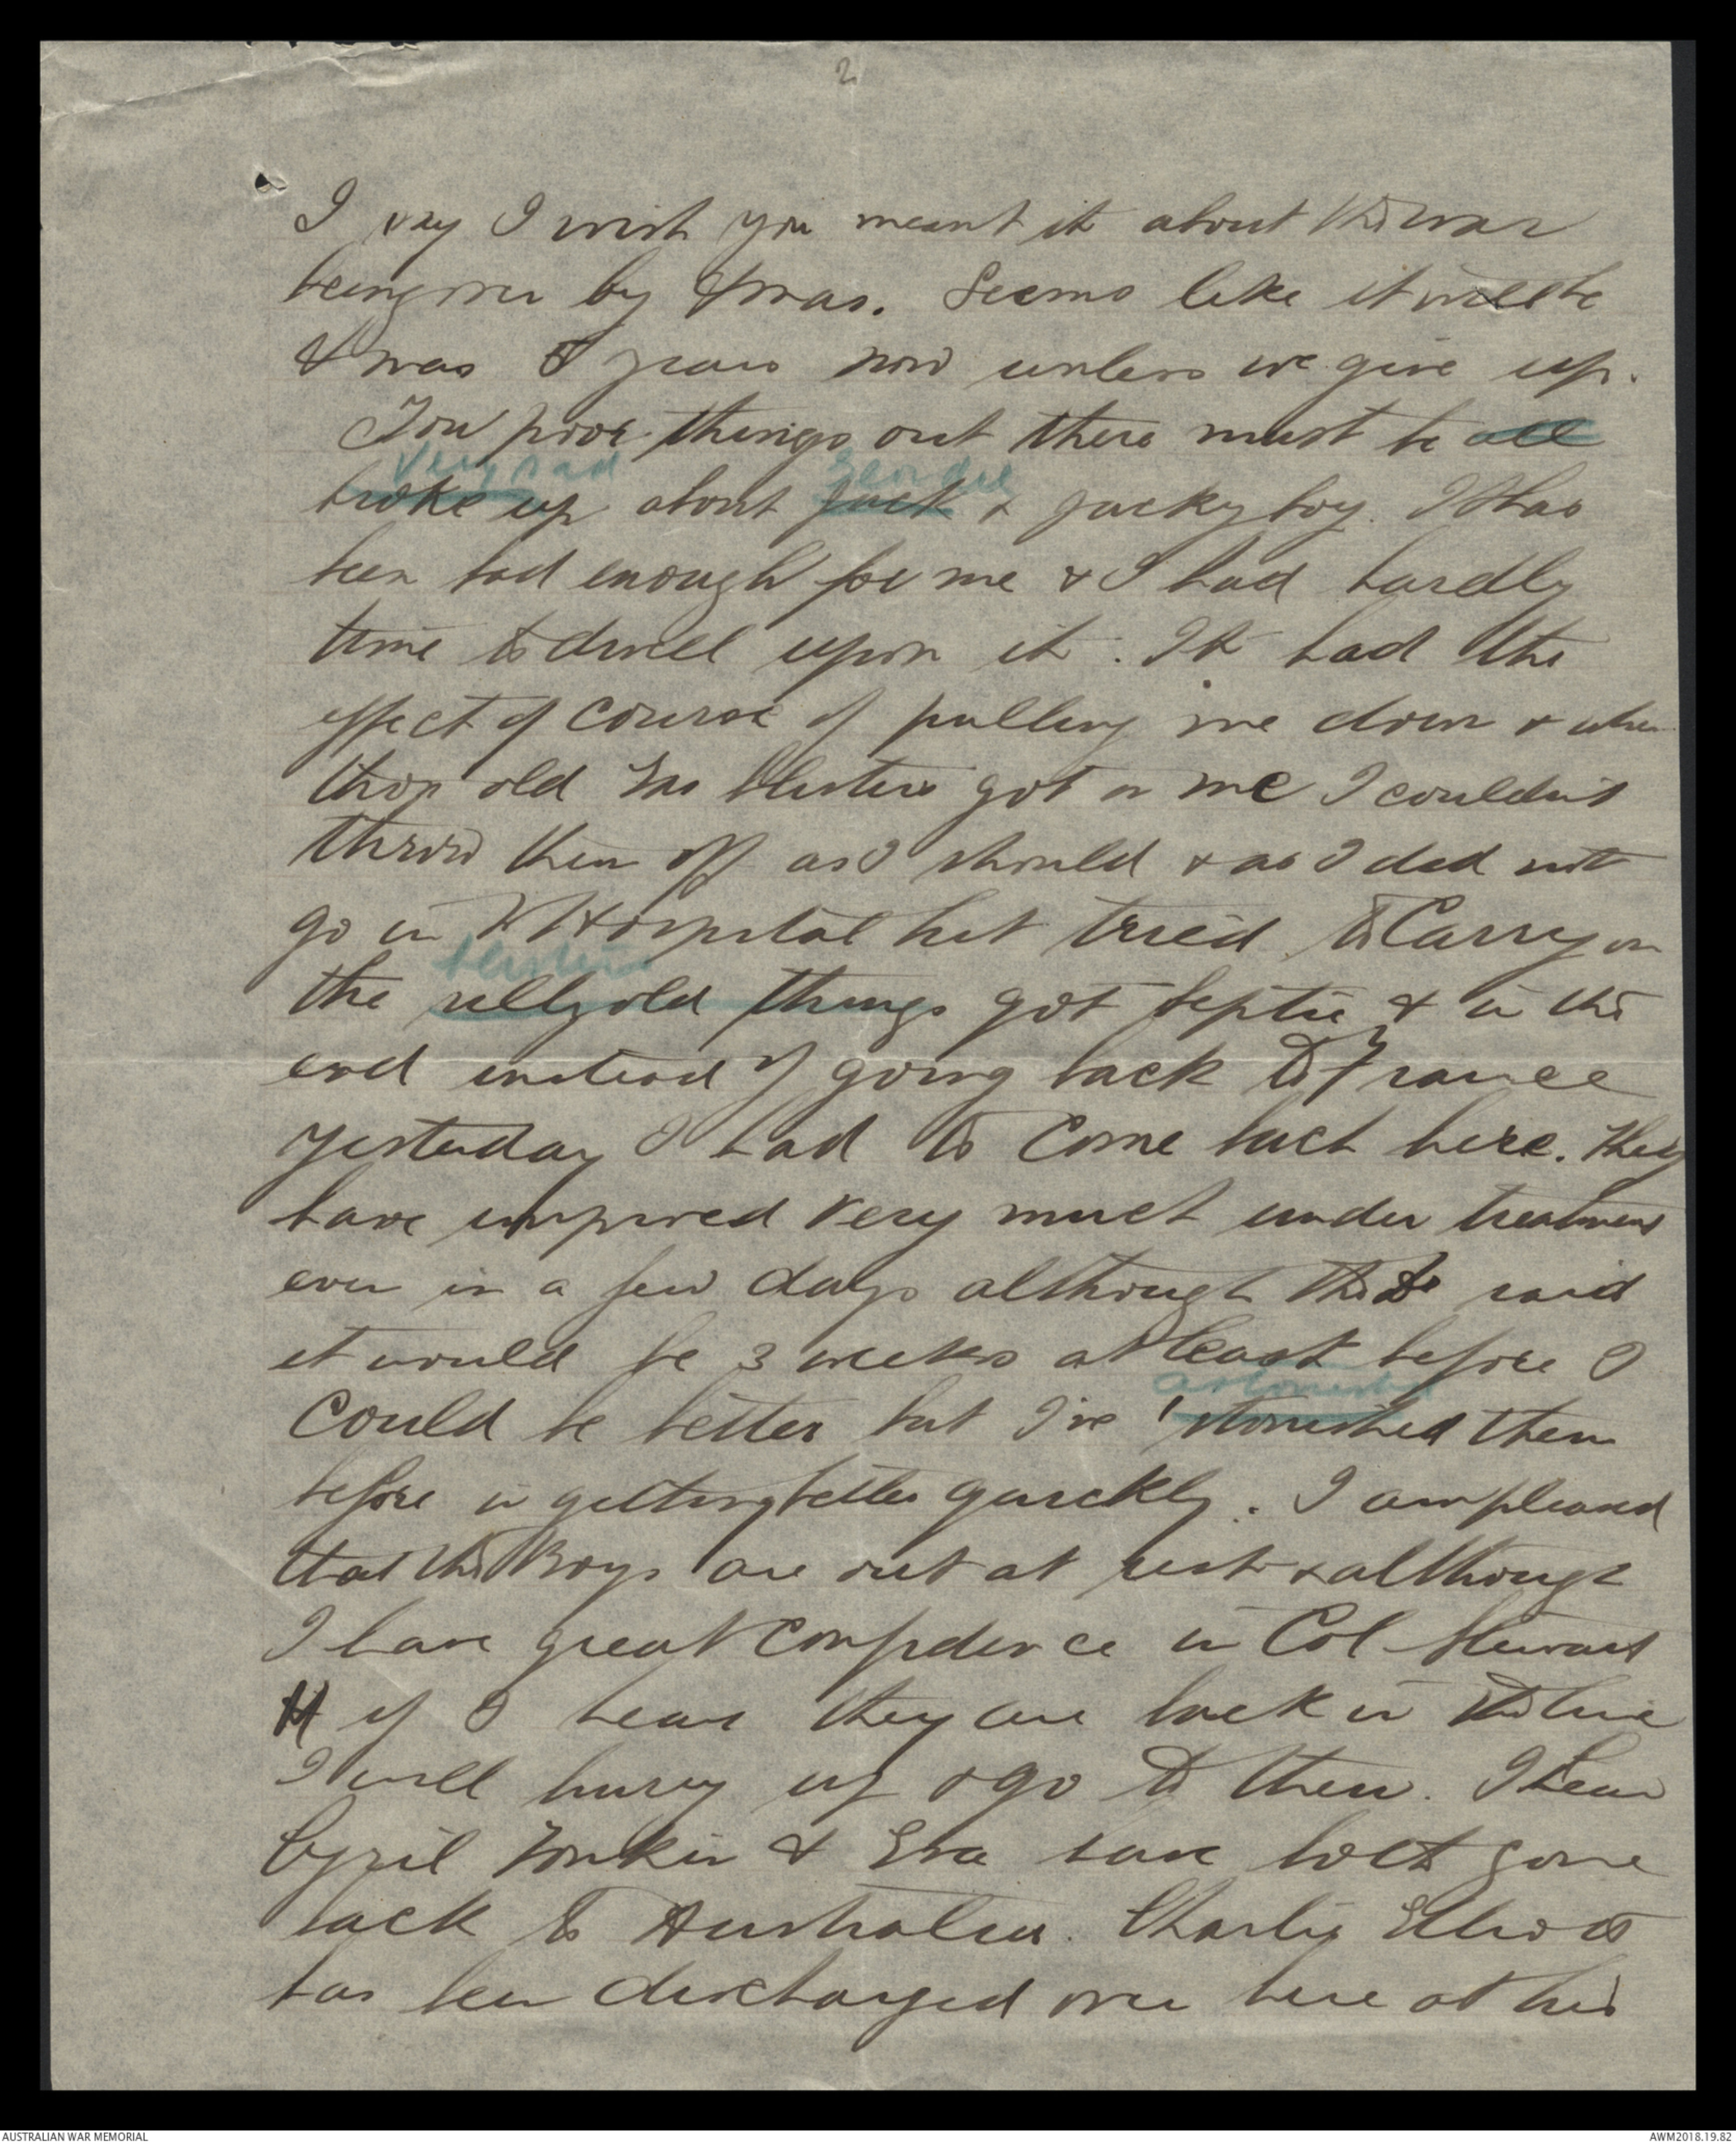 2
I say I wish you meant it about the war
being over by Xmas. Seems like it will be
Xmas 5 years now unless we give up.
You poor things out there must be all
very sad Geordie
broke up about Jack & Jacky boy. It has
been bad enough for me & I had hardly
time to dwell upon it. It had the
effect of course of pulling me down & when
those old gas blisters got on me I couldn't
throw them off as I should & as I did not
go in to Hospital but tried to Carry on
blisters
the silly old things got septic & in the
end instead of going back to France
yesterday I had to Come back here. They
have improved very much under treatment
even in a few days although the said
it would be 3 weeks at least before I
astonished
Could be better but I've 'stonished them
before in getting better quickly. I am pleased
that the Boys are out at rest & although
I have great Confidence in Col Stewart
if I hear they are back in the line
I will hurry up & go to them. I hear
Cyril & Eva have both gone
back to Australia. Charlie Elliott
has been discharged over here at his
AUSTRALIAN WAR MEMORIAL
AWM2018.19.82